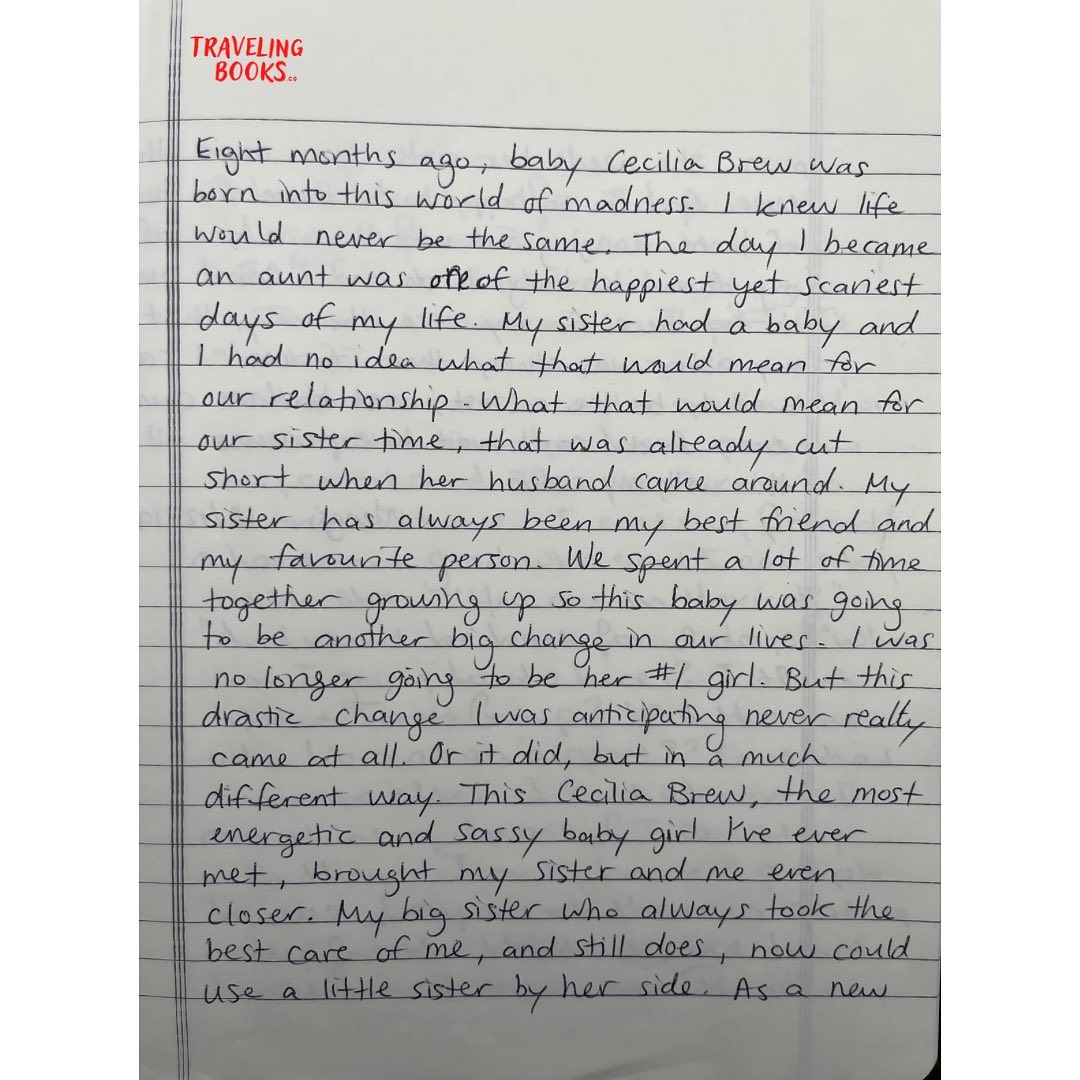 TRAVELING
BOOKS.co
Eight months ago, baby Cecilia Brew was
born into this world of madness. I knew life
would never be the same. The day I became
an aunt was one of the happiest yet scariest
days of my life. My sister had a baby and
I had no idea what that would mean for
our relationship. What that would mean for
our sister time, that was already cut
short when her husband came around. My
sister has always been my best friend and
my favourite person. We spent a lot of time
together growing up so this baby was going
to be another big change in our lives. I was
no longer going to be her #1 girl. But this
drastic change I was anticipating never really
came at all. Or it did, but in a much
different way. This Cecilia Brew, the most
energetic and sassy baby girl I've ever
met, brought my sister and me even
closer. My big sister who always took the
best care of me, and still does, now could
use a little sister by her side. As a new